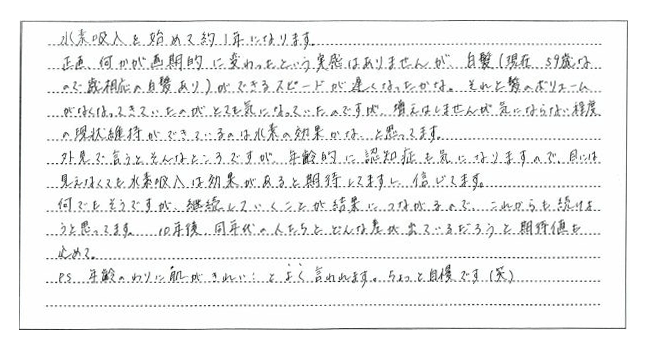 水素吸入を始めて約1年になります。
正直、何かが画期的に変わったという実感はありませんが、白髪(現在59歳な
ので歳相応の白髪あり)ができるスピードが遅くなったかな。それと髪のボリューム
がなくなってきていたのがとても気になっていたのですが、増えはしませんが気にならない程度
の現状維持ができているのは水素の効果かな、と思ってます。
外見で言うとそんなところですが、年齢的に認知症も気になりますので、目には
見えなくても水素吸入は効果があると期待してますし、信じてます。
何でもそうですが、継続していくことが結果につながるので、これからも続けよ
うと思ってます。 10年後、同年代の人たちとどんな差が出ているだろうと期待値を
込めて。
PS 年齢のわりに肌がきれい…とよく言われます。ちょっと自慢です(笑)